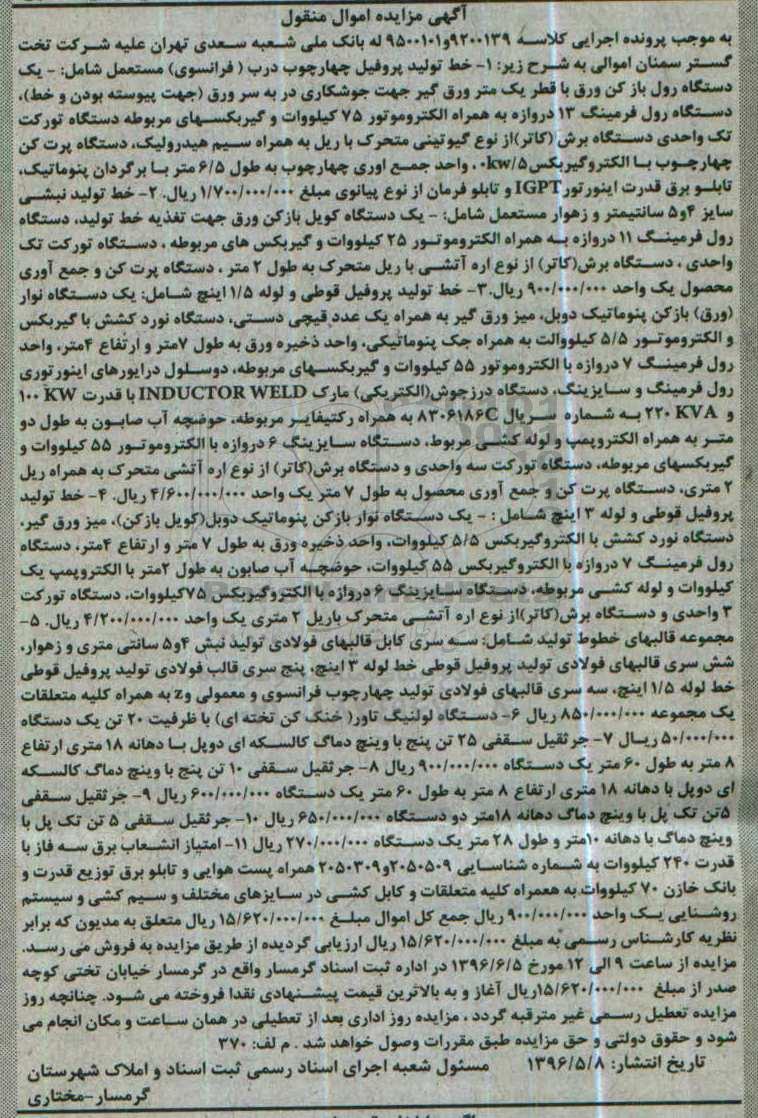 آگهی مزایده اموال منقول
به موجب پرونده اجرایی کلاسه ۹۲۰۰۱۳۹و۹۵۰۰۱۰۱ له بانک ملی شعبه سعدی تهران علیه شرکت تخت
گستر سمنان اموالی به شرح زیر: ۱- خط تولید پروفیل چهارچوب درب ( فرانسوی) مستعمل شامل: - یک
دستگاه رول باز کن ورق با قطر یک متر ورق گیر جهت جوشکاری در به سر ورق (جهت پیوسته بودن و خط)،
دستگاه رول فرمینگ ۱۳ دروازه به همراه الکتروموتور ۷۵ کیلووات و گیربکسهای مربوطه دستگاه تورکت
تک واحدی دستگاه برش (کاتر)از نوع گیوتینی متحرک با ریل به همراه سیم هیدرولیک، دستگاه پرت کن
چهارچوب با الکتروگیربکس ۰/۵kw، واحد جمع اوری چهارچوب به طول ۶/۵ متر با برگردان پنوماتیک،
تابلو برق قدرت اینورتور IGPT و تابلو فرمان از نوع پیانوی مبلغ ۱/۷۰۰/۰۰۰/۰۰۰ ریال. ۲- خط تولید نبشی
سایز ۴و۵ سانتیمتر و زهوار مستعمل شامل: - یک دستگاه کویل بازکن ورق جهت تغذیه خط تولید، دستگاه
رول فرمینگ ۱۱ دروازه به همراه الکتروموتور ۲۵ کیلووات و گیربکس های مربوطه ، دستگاه تورکت تک
واحدی ، دستگاه برش(کاتر) از نوع اره آتشی با ریل متحرک به طول ۲ متر ، دستگاه پرت کن و جمع آوری
محصول یک واحد ۹۰۰/۰۰۰/۰۰۰ ریال.۳- خط تولید پروفیل قوطی و لوله ۱/۵ اینچ شامل: یک دستگاه نوار
(ورق) بازکن پنوماتیک دوبل، میز ورق گیر به همراه یک عدد قیچی دستی، دستگاه نورد کشش با گیربکس
و الکتروموتور ۵/۵ کیلووالت به همراه جک پنوماتیکی، واحد ذخیره ورق به طول ۷متر و ارتفاع ۴متر، واحد
رول فرمینگ ۷ دروازه با الکتروموتور ۵۵ کیلووات و گیربکسهای مربوطه، دوسلول درایورهای اینورتوری
رول فرمینگ و سایزینگ، دستگاه درزجوش(الکتریکی) مارک INDUCTOR WELD با قدرت ۱۰۰ KW
و ۲۲۰ KVA به شماره سریال ۸۳۰۶۱۸۶C به همراه رکتیفایر مربوطه، حوضچه آب صابون به طول دو
متر به همراه الکتروپمپ و لوله کشی مربوط، دستگاه سایزینگ ۶ دروازه با الکتروموتور ۵۵ کیلووات و
گیربکسهای مربوطه، دستگاه تورکت سه واحدی و دستگاه برش(کاتر) از نوع اره آتشی متحرک به همراه ریل
۲ متری، دستگاه پرت کن و جمع آوری محصول به طول ۷ متر یک واحد ۴/۶۰۰/۰۰۰/۰۰۰ ریال. ۴- خط تولید
پروفیل قوطی و لوله ۳ اینچ شامل : - یک دستگاه نوار بازکن پنوماتیک دوبل(کویل بازکن)، میز ورق گیر،
دستگاه نورد کشش با الکتروگیربکس ۵/۵ کیلووات، واحد ذخیره ورق به طول ۷ متر و ارتفاع ۴متر، دستگاه
رول فرمینگ ۷ دروازه با الکتروگیربکس ۵۵ کیلووات، حوضچه آب صابون به طول ۲متر با الکتروپمپ یک
کیلووات و لوله کشی مربوطه، دستگاه سایزینگ ۶ دروازه با الکتروگیربکس ۷۵کیلووات، دستگاه تورکت
۳ واحدی و دستگاه برش(کاتر)از نوع اره آتشی متحرک باریل ۲ متری یک واحد ۴/۲۰۰/۰۰۰/۰۰۰ ریال. ۵-
مجموعه قالبهای خطوط تولید شامل: سه سری کابل قالبهای فولادی تولید نبش ۴و۵ سانتی متری و زهوار،
شش سری قالبهای فولادی تولید پروفیل قوطی خط لوله ۳ اینچ، پنج سری قالب فولادی تولید پروفیل قوطی
خط لوله ۱/۵ اینچ، سه سری قالبهای فولادی تولید چهارچوب فرانسوی و معمولی وz به همراه کلیه متعلقات
یک مجموعه ۸۵۰/۰۰۰/۰۰۰ ریال ۶- دستگاه لولنیگ تاور( خنک کن تخته ای) با ظرفیت ۲۰ تن یک دستگاه
۵۰/۰۰۰/۰۰۰ ریال ۷- جرثقیل سقفی ۲۵ تن پنج با وینچ دماگ کالسکه ای دوپل با دهانه ۱۸ متری ارتفاع
۸ متر به طول ۶۰ متر یک دستگاه ۹۰۰/۰۰۰/۰۰۰ ریال ۸- جرثقیل سقفی ۱۰ تن پنج با وینچ دماگ کالسکه
ای دوپل با دهانه ۱۸ متری ارتفاع ۸ متر به طول ۶۰ متر یک دستگاه ۶۰۰/۰۰۰/۰۰۰ ریال ۹- جرثقیل سقفی
۵تن تک پل با وینچ دماگ دهانه ۱۸متر دو دستگاه ۶۵۰/۰۰۰/۰۰۰ ریال ۱۰- جرثقیل سقفی ۵ تن تک پل با
وینچ دماگ با دهانه ۱۰متر و طول ۲۸ متر یک دستگاه ۲۷۰/۰۰۰/۰۰۰ ریال ۱۱- امتیاز انشعاب برق سه فاز با
قدرت ۲۴۰ کیلووات به شماره شناسایی ۲۰۵۰۵۰۹و۲۰۵۰۳۰۹ همراه پست هوایی و تابلو برق توزیع قدرت و
بانک خازن ۷۰ کیلووات به همراه کلیه متعلقات و کابل کشی در سایزهای مختلف و سیم کشی و سیستم
روشنایی یک واحد ۹۰۰/۰۰۰/۰۰۰ ریال جمع کل اموال مبلغ ۱۵/۶۲۰/۰۰۰/۰۰۰ ریال متعلق به مدیون که برابر
نظریه کارشناس رسمی به مبلغ ۱۵/۶۲۰/۰۰۰/۰۰۰ ریال ارزیابی گردیده از طریق مزایده به فروش می رسد.
مزایده از ساعت ۹ الی ۱۲ مورخ ۱۳۹۶/۶/۵ در اداره ثبت اسناد گرمسار واقع در گرمسار خیابان تختی کوچه
صدر از مبلغ ۱۵/۶۲۰/۰۰۰/۰۰۰ریال آغاز و به بالاترین قیمت پیشنهادی نقدا فروخته می شود. چنانچه روز
مزایده تعطیل رسمی غیر مترقبه گردد ، مزایده روز اداری بعد از تعطیلی در همان ساعت و مکان انجام می
شود و حقوق دولتی و حق مزایده طبق مقررات وصول خواهد شد . م لف: ۳۷۰
تاریخ انتشار: ۱۳۹۶/۵/۸ مسئول شعبه اجرای اسناد رسمی ثبت اسناد و املاک شهرستان
گرمسار-مختاری